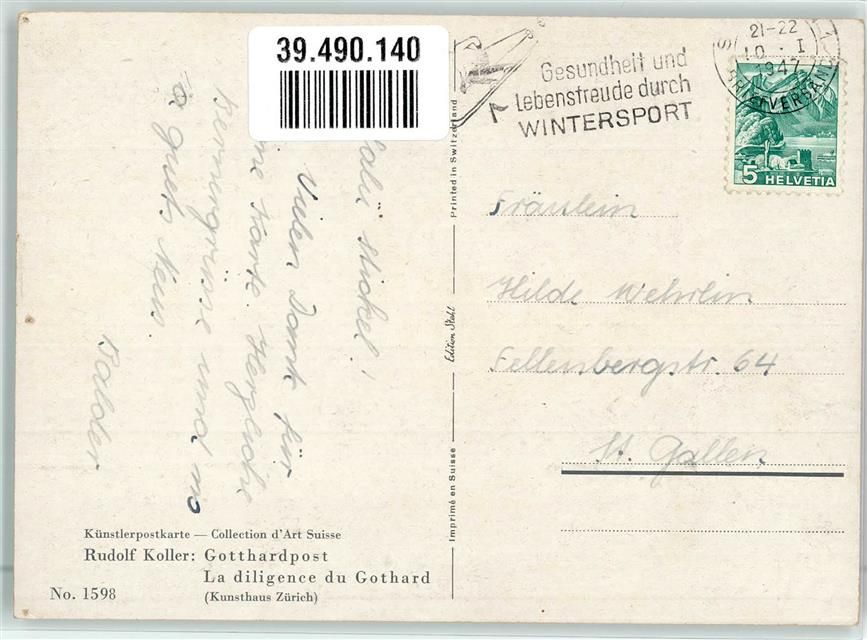 39.490.140
Gesundheit und
Lebensfreude durch
WINTERSPORT
21-22
10. I
1947
BRIEFVERSAND
5 HELVETIA
Printed in Switzerland
Edition Stehli
Imprimé en Suisse
Fräulein
Hilde Wehrlin
Fellenbergstr. 64
St. Gallen
Vielen Dank für
Karte. Herzliche
und no
guets Neus.
Künstlerpostkarte — Collection d'Art Suisse
Rudolf Koller: Gotthardpost
La diligence du Gothard
(Kunsthaus Zürich)
No. 1598